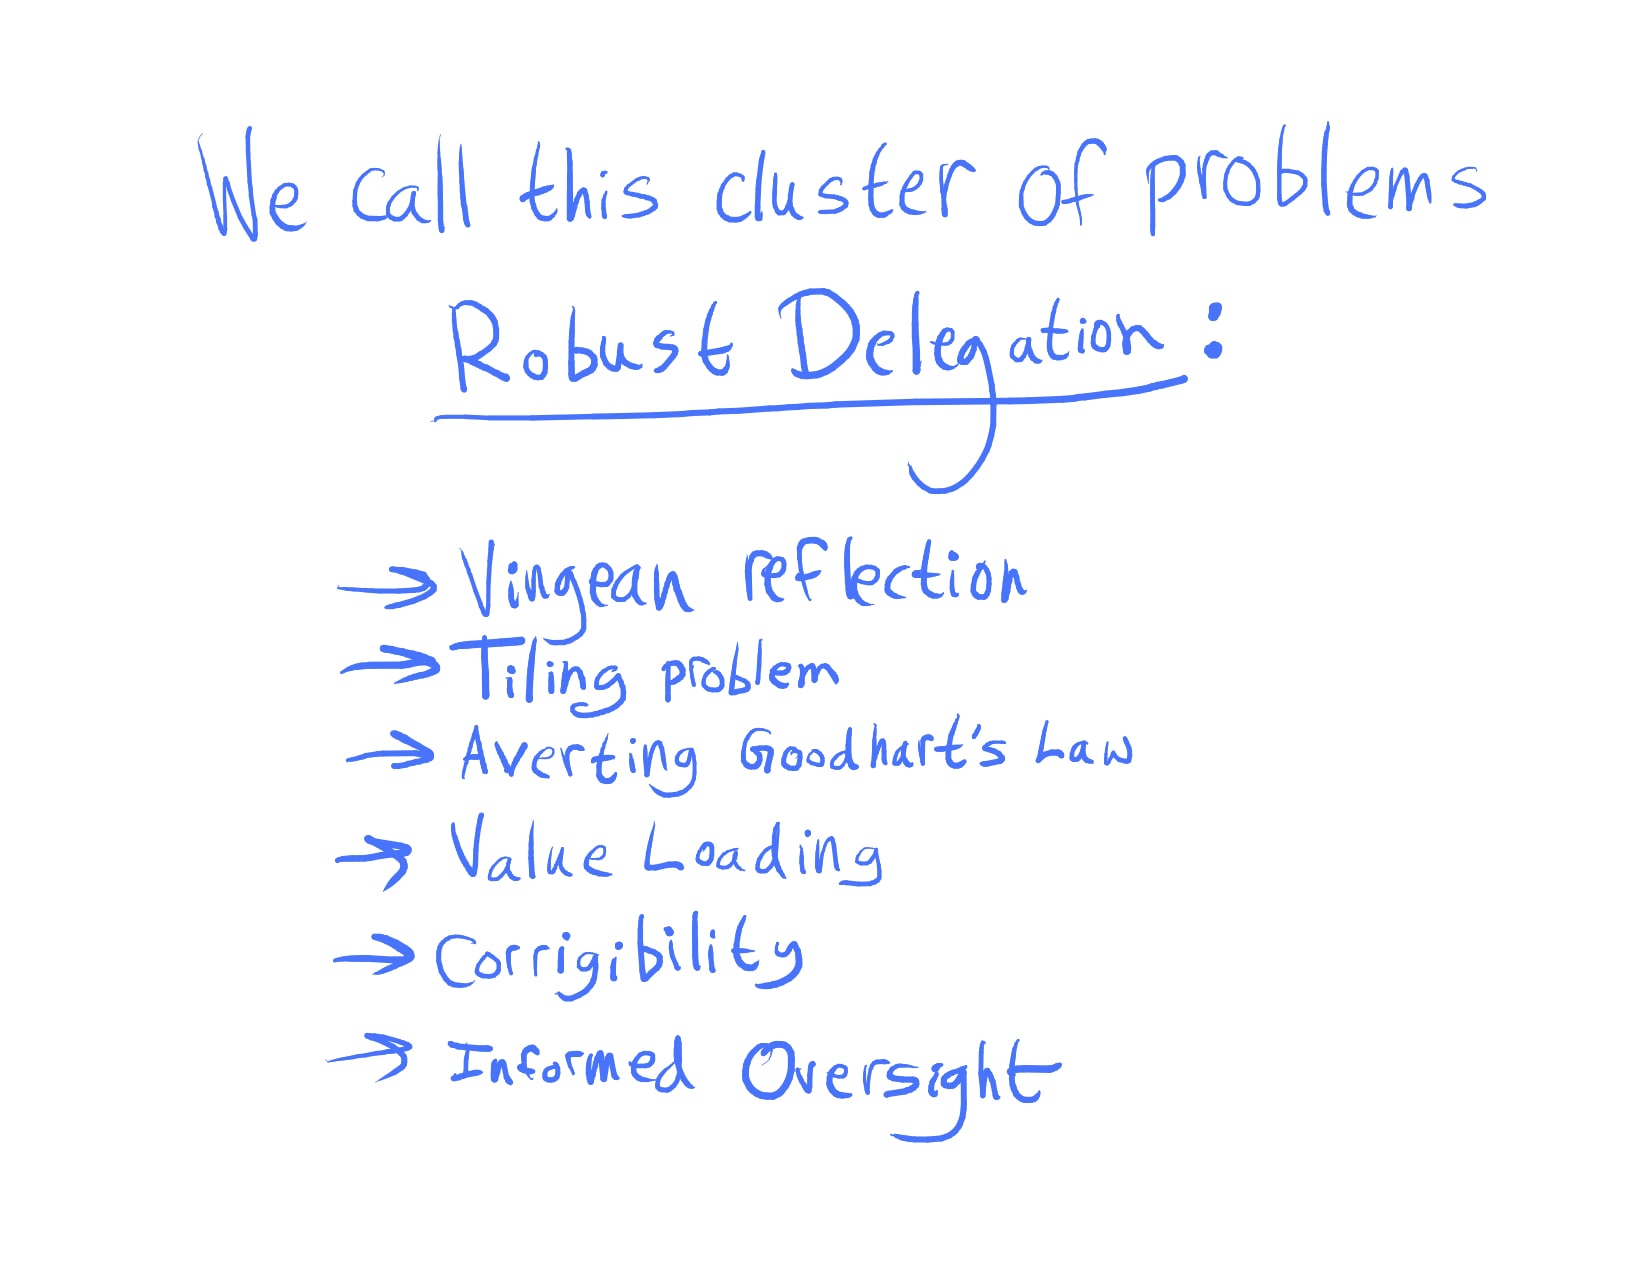 We call this cluster of problems
Robust Delegation:
→ Vingean reflection
→ Tiling problem
→ Averting Goodhart's Law
→ Value Loading
→ Corrigibility
→ Informed Oversight